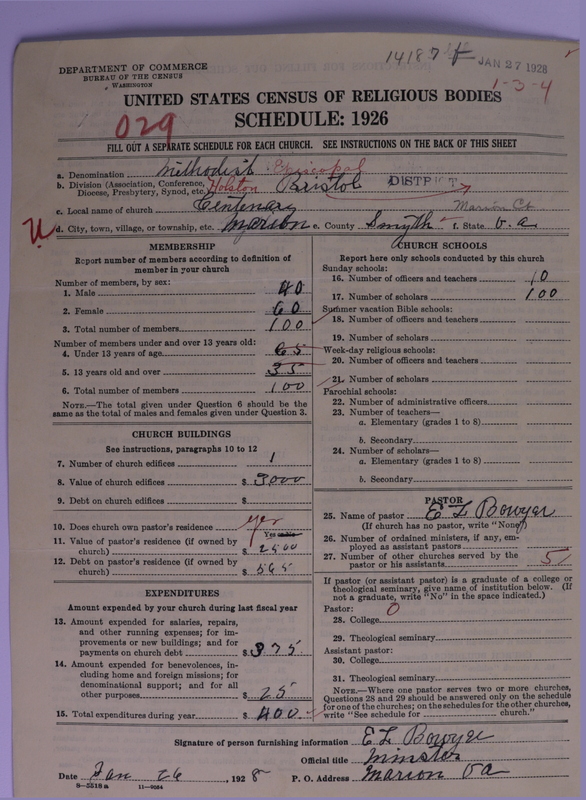 14187
JAN 27 1928
1-3-4
DEPARTMENT OF COMMERCE
BUREAU OF THE CENSUS
WASHINGTON
UNITED STATES CENSUS OF RELIGIOUS BODIES
029
SCHEDULE: 1926
FILL OUT A SEPARATE SCHEDULE FOR EACH CHURCH. SEE INSTRUCTIONS ON THE BACK OF THIS SHEET
a. Denomination Methodist Episcopal
b. Division (Association, Conference, Diocese, Presbytery, Synod, etc.) Holston Bristol DISTRICT
c. Local name of church Centenary Marion Ct
U
d. City, town, village, or township, etc. Marion e. County Smyth f. State Va.
MEMBERSHIP
Report number of members according to definition of member in your church
Number of members, by sex:
1. Male 40
2. Female 60
3. Total number of members 100
Number of members under and over 13 years old:
4. Under 13 years of age 65
5. 13 years old and over 35
6. Total number of members 100
NOTE.—The total given under Question 6 should be the same as the total of males and females given under Question 3.
CHURCH BUILDINGS
See instructions, paragraphs 10 to 12
7. Number of church edifices 1
8. Value of church edifices $ 3000
9. Debt on church edifices $
10. Does church own pastor's residence yes
Yes or no
11. Value of pastor's residence (if owned by church) $ 2500
12. Debt on pastor's residence (if owned by church) $ 565
EXPENDITURES
Amount expended by your church during last fiscal year
13. Amount expended for salaries, repairs, and other running expenses; for improvements or new buildings; and for payments on church debt $ 375
14. Amount expended for benevolences, including home and foreign missions; for denominational support; and for all other purposes $ 25
15. Total expenditures during year $ 400
CHURCH SCHOOLS
Report here only schools conducted by this church
Sunday schools:
16. Number of officers and teachers 10
17. Number of scholars 100
Summer vacation Bible schools:
18. Number of officers and teachers
19. Number of scholars
Week-day religious schools:
20. Number of officers and teachers
21. Number of scholars
Parochial schools:
22. Number of administrative officers
23. Number of teachers—
a. Elementary (grades 1 to 8)
b. Secondary
24. Number of scholars—
a. Elementary (grades 1 to 8)
b. Secondary
PASTOR
25. Name of pastor E L Bowyer
(If church has no pastor, write "None")
26. Number of ordained ministers, if any, employed as assistant pastors
27. Number of other churches served by the pastor or his assistants 5
If pastor (or assistant pastor) is a graduate of a college or theological seminary, give name of institution below. (If not a graduate, write "No" in the space indicated.)
Pastor: 0
28. College
29. Theological seminary
Assistant pastor:
30. College
31. Theological seminary
NOTE.—Where one pastor serves two or more churches, Questions 28 and 29 should be answered only on the schedule for one of the churches; on the schedules for the other churches, write "See schedule for church."
Signature of person furnishing information E L Bowyer
Official title Minister
Date Jan 26, 1928 P. O. Address Marion Va
8—5518 a 11—9034